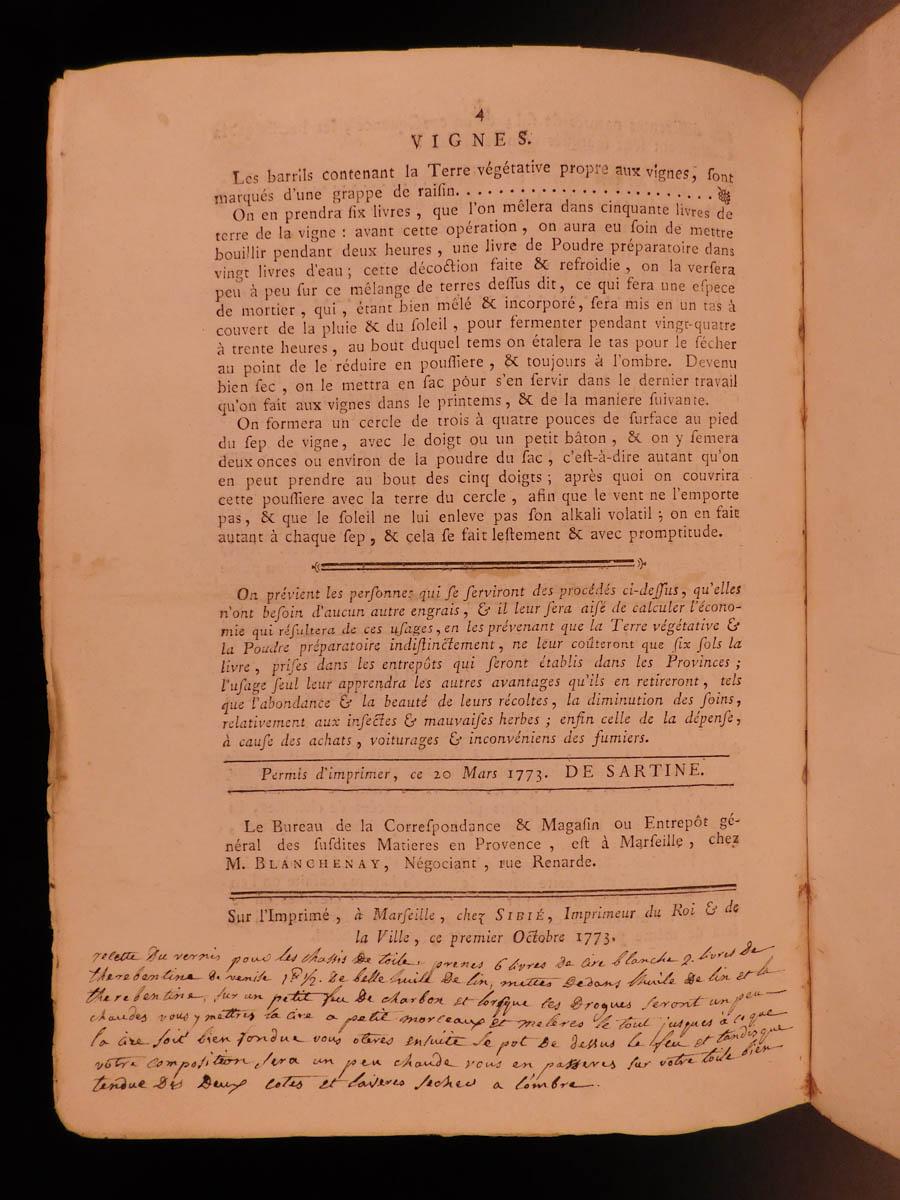 4
VIGNES.
Les barrils contenant la Terre végétative propre aux vignes, ſont
marqués d'une grappe de raiſin. . . . . . . . . . . . . . . . . . . . . . . .
On en prendra ſix livres, que l'on mêlera dans cinquante livres de
terre de la vigne : avant cette opération, on aura eu ſoin de mettre
bouillir pendant deux heures, une livre de Poudre préparatoire dans
vingt livres d'eau ; cette décoction faite & refroidie, on la verſera
peu à peu ſur ce mêlange de terres deſſus dit, ce qui fera une eſpece
de mortier, qui, étant bien mêlé & incorporé, ſera mis en un tas à
couvert de la pluie & du ſoleil, pour fermenter pendant vingt-quatre
à trente heures, au bout duquel tems on étalera le tas pour le ſécher
au point de le réduire en pouſſiere, & toujours à l'ombre. Devenu
bien ſec, on le mettra en ſac pour s'en ſervir dans le dernier travail
qu'on fait aux vignes dans le printems, & de la maniere ſuivante.
On formera un cercle de trois à quatre pouces de ſurface au pied
du ſep de vigne, avec le doigt ou un petit bâton, & on y ſemera
deux onces ou environ de la poudre du ſac, c'eſt-à-dire autant qu'on
en peut prendre au bout des cinq doigts ; après quoi on couvrira
cette pouſſiere avec la terre du cercle, afin que le vent ne l'emporte
pas, & que le ſoleil ne lui enleve pas ſon alkali volatil ; on en fait
autant à chaque ſep, & cela ſe fait leſtement & avec promptitude.
On prévient les perſonnes qui ſe ſerviront des procédés ci-deſſus, qu'elles
n'ont beſoin d'aucun autre engrais, & il leur ſera aiſé de calculer l'écono-
mie qui réſultera de ces uſages, en les prévenant que la Terre végétative &
la Poudre préparatoire indiſtinctement, ne leur coûteront que ſix ſols la
livre, priſes dans les entrepôts qui ſeront établis dans les Provinces ;
l'uſage ſeul leur apprendra les autres avantages qu'ils en retireront, tels
que l'abondance & la beauté de leurs récoltes, la diminution des ſoins,
relativement aux inſectes & mauvaiſes herbes ; enfin celle de la dépenſe,
à cauſe des achats, voiturages & inconvéniens des fumiers.
Permis d'imprimer, ce 20 Mars 1773. DE SARTINE.
Le Bureau de la Correſpondance & Magaſin ou Entrepôt gé-
néral des ſuſdites Matieres en Provence, eſt à Marſeille, chez
M. BLANCHENAY, Négociant, rue Renarde.
Sur l'Imprimé, à Marſeille, chez SIBIÉ, Imprimeur du Roi & de
la Ville, ce premier Octobre 1773.
recette du vernis pour les chassis de toile. prenes 6 livres de cire blanche 2. livres de
therebentine de venise 1 1/2. de belle huile de lin, mettes dedans l'huile de lin et la
therebentine, sur un petit feu de charbon et lorsque ces drogues seront un peu
chaudes vous y mettres la cire a petit morceaux et meleres le tout jusques a ce que
la cire soit bien fondue vous oteres ensuite le pot de dessus le feu et tandis que
votre composition sera un peu chaude vous en passeres sur votre toile bien
tendue des deux cotes et laiseres secher a l'ombre.